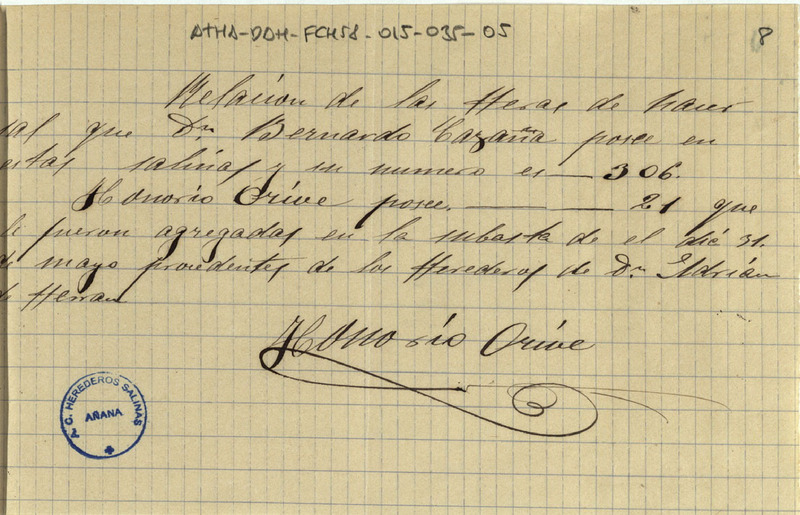 ATHA-DAH-FCH58-015-035-05
8
Relacion de las Heras de hacer
sal que Dn Bernardo Cazaña posee en
estas salinas y su numero es — 306.
Honorio Orive posee. — — 21 que
le fueron agregadas en la subasta de el dié 31.
de mayo procedentes de los Herederos de Dn Adrián
de Herran
Honorio Orive
HEREDEROS SALINAS
AÑANA